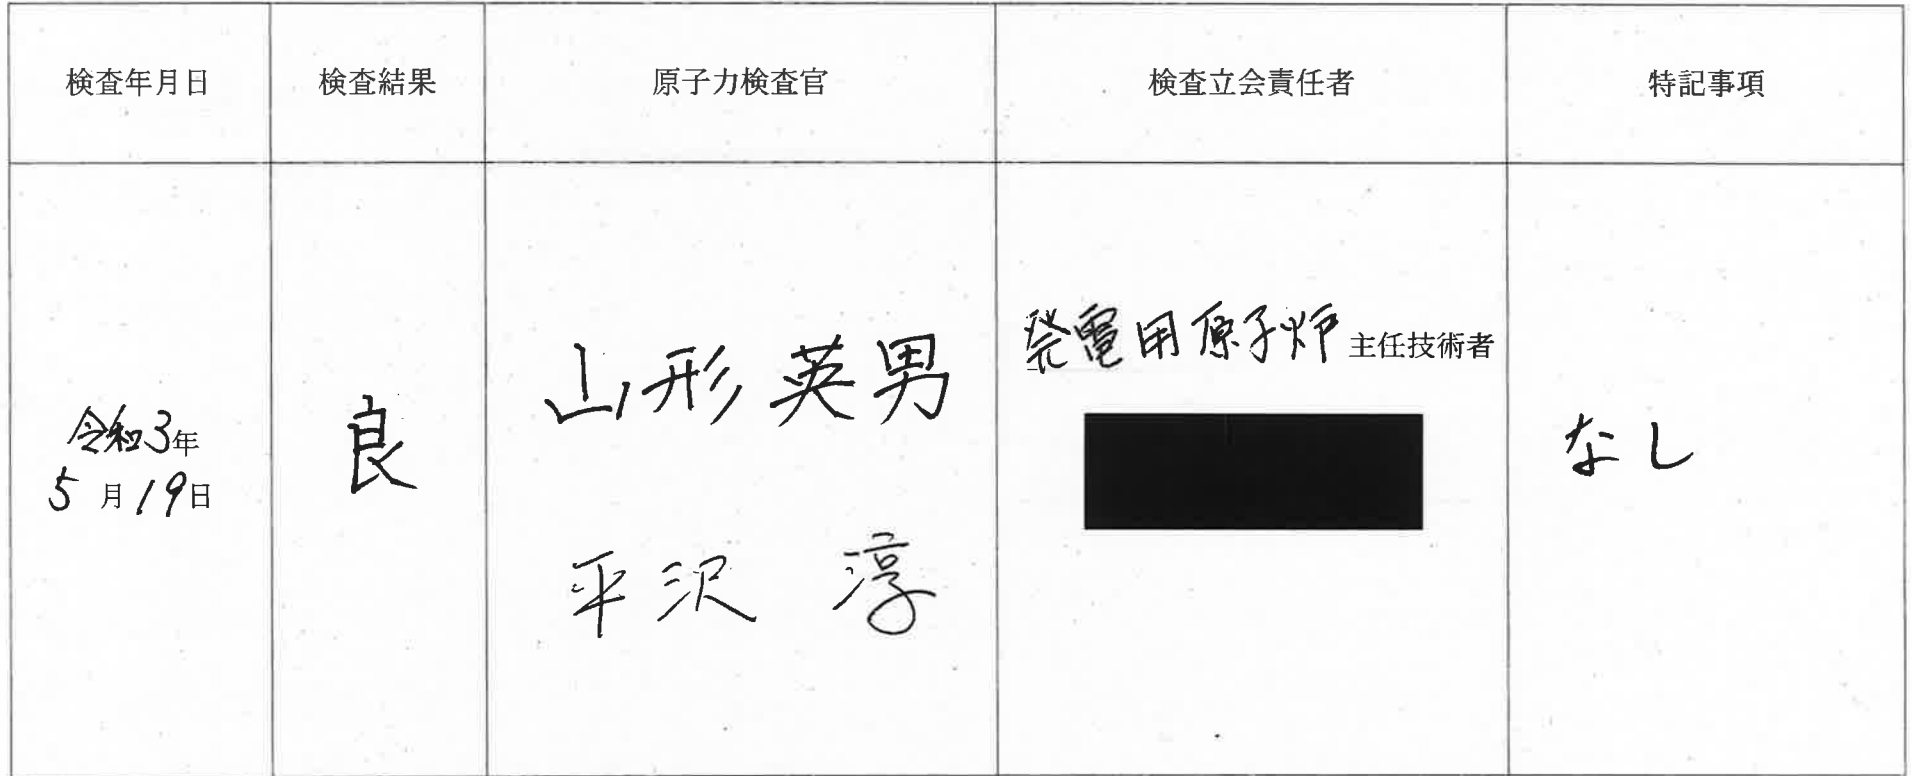 検査年月日
検査結果
原子力検査官
検査立会責任者
特記事項
令和3年
5月19日
良
山形英男
平沢 淳
発電用原子炉主任技術者
なし